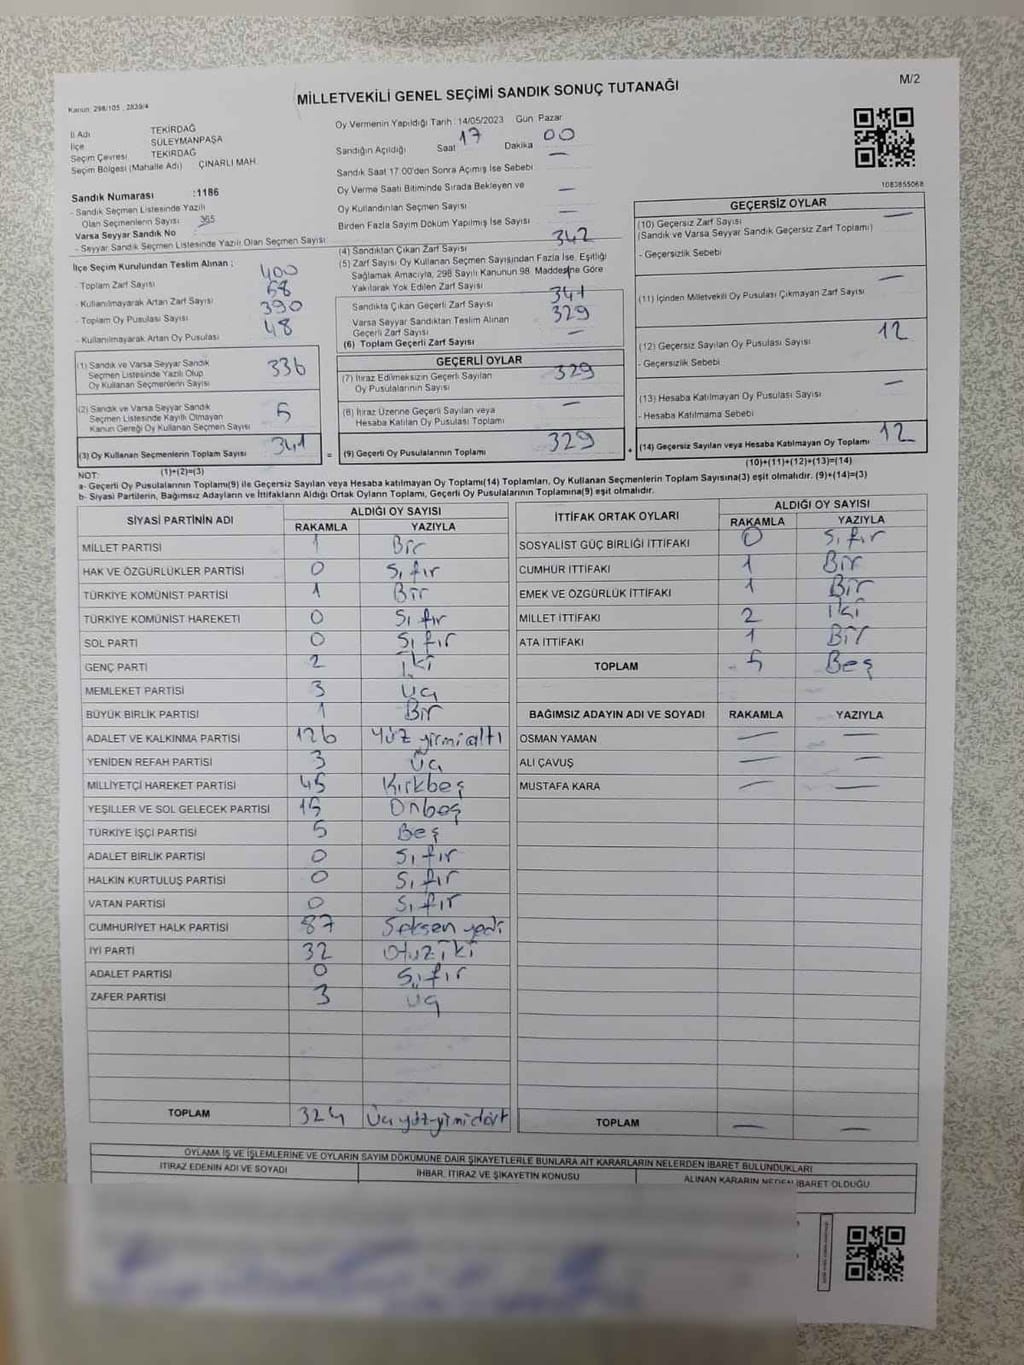 M/2
Kanun: 298/105 , 2839/4
MİLLETVEKİLİ GENEL SEÇİMİ SANDIK SONUÇ TUTANAĞI
İl Adı TEKİRDAĞ
İlçe SÜLEYMANPAŞA
Seçim Çevresi TEKİRDAĞ
Seçim Bölgesi (Mahalle Adı) ÇINARLI MAH.
Sandık Numarası :1186
- Sandık Seçmen Listesinde Yazılı
Olan Seçmenlerin Sayısı 365
Varsa Seyyar Sandık No
- Seyyar Sandık Seçmen Listesinde Yazılı Olan Seçmen Sayısı
Oy Vermenin Yapıldığı Tarih : 14/05/2023 Gün Pazar
Sandığın Açıldığı Saat 17 Dakika 00
Sandık Saat 17.00'den Sonra Açmış İse Sebebi —
Oy Verme Saati Bitiminde Sırada Bekleyen ve
Oy Kullandırılan Seçmen Sayısı —
Birden Fazla Sayım Döküm Yapılmış İse Sayısı —
İlçe Seçim Kurulundan Teslim Alınan ;
- Toplam Zarf Sayısı 400
- Kullanılmayarak Artan Zarf Sayısı 58
- Toplam Oy Pusulası Sayısı 390
- Kullanılmayarak Artan Oy Pusulası 48
(1) Sandık ve Varsa Seyyar Sandık
Seçmen Listesinde Yazılı Olup
Oy Kullanan Seçmenlerin Sayısı 336
(2) Sandık ve Varsa Seyyar Sandık
Seçmen Listesinde Kayıtlı Olmayan
Kanun Gereği Oy Kullanan Seçmen Sayısı 5
(3) Oy Kullanan Seçmenlerin Toplam Sayısı 341
(1)+(2)=(3)
(4) Sandıktan Çıkan Zarf Sayısı 342
(5) Zarf Sayısı Oy Kullanan Seçmen Sayısından Fazla İse, Eşitliği
Sağlamak Amacıyla, 298 Sayılı Kanunun 98. Maddesine Göre
Yakılarak Yok Edilen Zarf Sayısı 1
Sandıkta Çıkan Geçerli Zarf Sayısı 341
Varsa Seyyar Sandıktan Teslim Alınan 329
Geçerli Zarf Sayısı —
(6) Toplam Geçerli Zarf Sayısı
GEÇERLİ OYLAR
(7) İtiraz Edilmeksizin Geçerli Sayılan
Oy Pusulalarının Sayısı 329
(8) İtiraz Üzerine Geçerli Sayılan veya
Hesaba Katılan Oy Pusulası Toplamı —
= (9) Geçerli Oy Pusulalarının Toplamı 329
1083855068
GEÇERSİZ OYLAR
(10) Geçersiz Zarf Sayısı —
(Sandık ve Varsa Seyyar Sandık Geçersiz Zarf Toplamı)
- Geçersizlik Sebebi
(11) İçinden Milletvekili Oy Pusulası Çıkmayan Zarf Sayısı —
(12) Geçersiz Sayılan Oy Pusulası Sayısı 12
- Geçersizlik Sebebi
(13) Hesaba Katılmayan Oy Pusulası Sayısı —
- Hesaba Katılmama Sebebi
+ (14) Geçersiz Sayılan veya Hesaba Katılmayan Oy Toplamı 12
(10)+(11)+(12)+(13)=(14)
NOT:
a- Geçerli Oy Pusulalarının Toplamı(9) ile Geçersiz Sayılan veya Hesaba katılmayan Oy Toplamı(14) Toplamları, Oy Kullanan Seçmenlerin Toplam Sayısına(3) eşit olmalıdır. (9)+(14)=(3)
b- Siyasi Partilerin, Bağımsız Adayların ve İttifakların Aldığı Ortak Oyların Toplamı, Geçerli Oy Pusulalarının Toplamına(9) eşit olmalıdır.
SİYASİ PARTİNİN ADI ALDIĞI OY SAYISI
RAKAMLA YAZIYLA
MİLLET PARTİSİ 1 Bir
HAK VE ÖZGÜRLÜKLER PARTİSİ 0 Sıfır
TÜRKİYE KOMÜNİST PARTİSİ 1 Bir
TÜRKİYE KOMÜNİST HAREKETİ 0 Sıfır
SOL PARTİ 0 Sıfır
GENÇ PARTİ 2 İki
MEMLEKET PARTİSİ 3 Üç
BÜYÜK BİRLİK PARTİSİ 1 Bir
ADALET VE KALKINMA PARTİSİ 126 Yüz yirmialtı
YENİDEN REFAH PARTİSİ 3 Üç
MİLLİYETÇİ HAREKET PARTİSİ 45 Kırkbeş
YEŞİLLER VE SOL GELECEK PARTİSİ 15 Onbeş
TÜRKİYE İŞÇİ PARTİSİ 5 Beş
ADALET BİRLİK PARTİSİ 0 Sıfır
HALKIN KURTULUŞ PARTİSİ 0 Sıfır
VATAN PARTİSİ 0 Sıfır
CUMHURİYET HALK PARTİSİ 87 Seksen yedi
İYİ PARTİ 32 Otuziki
ADALET PARTİSİ 0 Sıfır
ZAFER PARTİSİ 3 Üç
TOPLAM 324 Üçyüz-yirmidört
İTTİFAK ORTAK OYLARI ALDIĞI OY SAYISI
RAKAMLA YAZIYLA
SOSYALİST GÜÇ BİRLİĞİ İTTİFAKI 0 Sıfır
CUMHUR İTTİFAKI 1 Bir
EMEK VE ÖZGÜRLÜK İTTİFAKI 1 Bir
MİLLET İTTİFAKI 2 İki
ATA İTTİFAKI 1 Bir
TOPLAM 5 Beş
BAĞIMSIZ ADAYIN ADI VE SOYADI RAKAMLA YAZIYLA
OSMAN YAMAN — —
ALİ ÇAVUŞ — —
MUSTAFA KARA — —
TOPLAM — —
OYLAMA İŞ VE İŞLEMLERİNE VE OYLARIN SAYIM DÖKÜMÜNE DAİR ŞİKAYETLERLE BUNLARA AİT KARARLARIN NELERDEN İBARET BULUNDUKLARI
İTİRAZ EDENİN ADI VE SOYADI İHBAR, İTİRAZ VE ŞİKAYETİN KONUSU ALINAN KARARIN NEDEN İBARET OLDUĞU